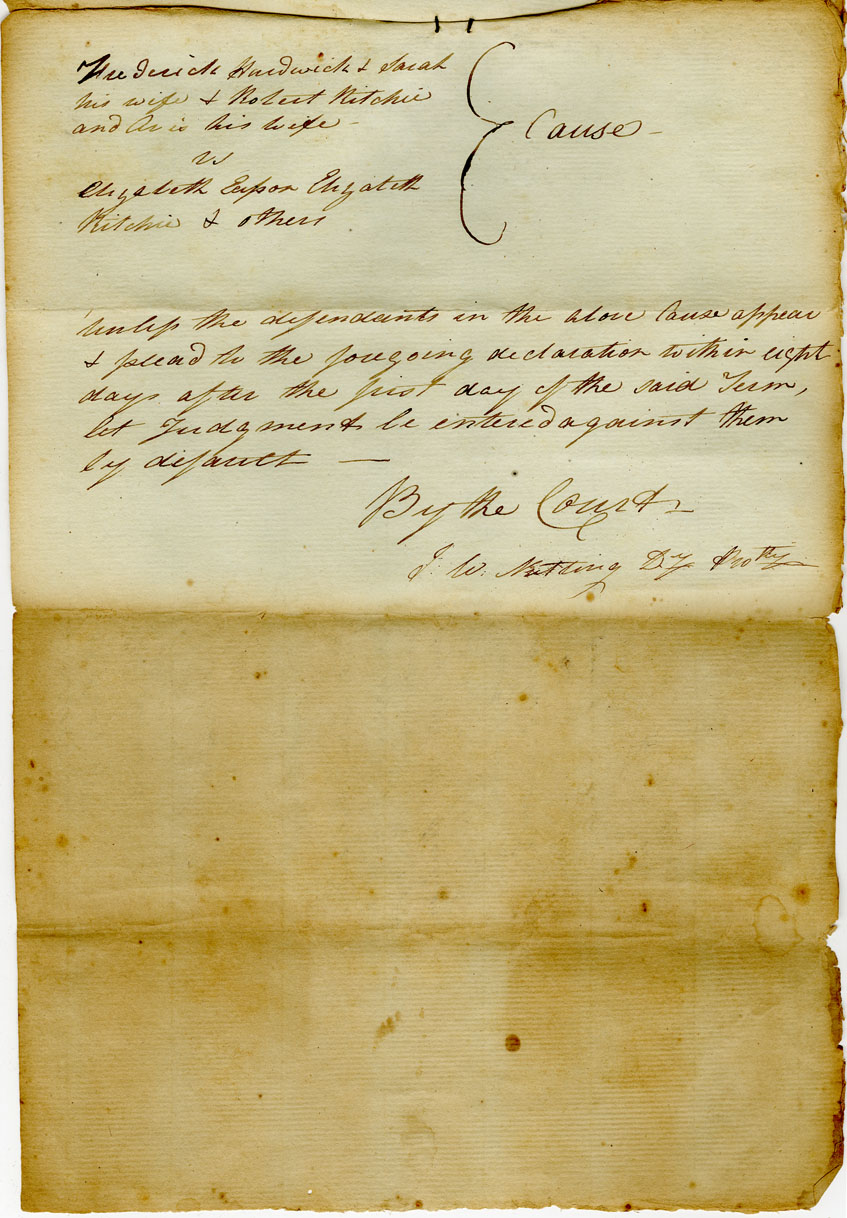 Frederick Hardwick & Sarah
his wife & Robert Ritchie
and Avis his wife -
vs
Elizabeth Easson Elizabeth
Ritchie & others
Cause -
Unless the defendants in the above Cause appear
& plead to the foregoing declaration within eight
days after the first day of the said Term,
let Judgment be entered against them
by default —
By the Court -
J. W. Nutting Dy Prothy